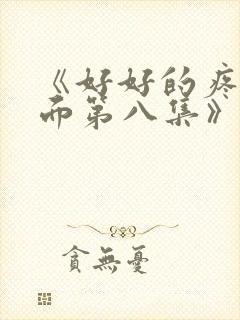 《好好的疼
而第八集》
貪無憂